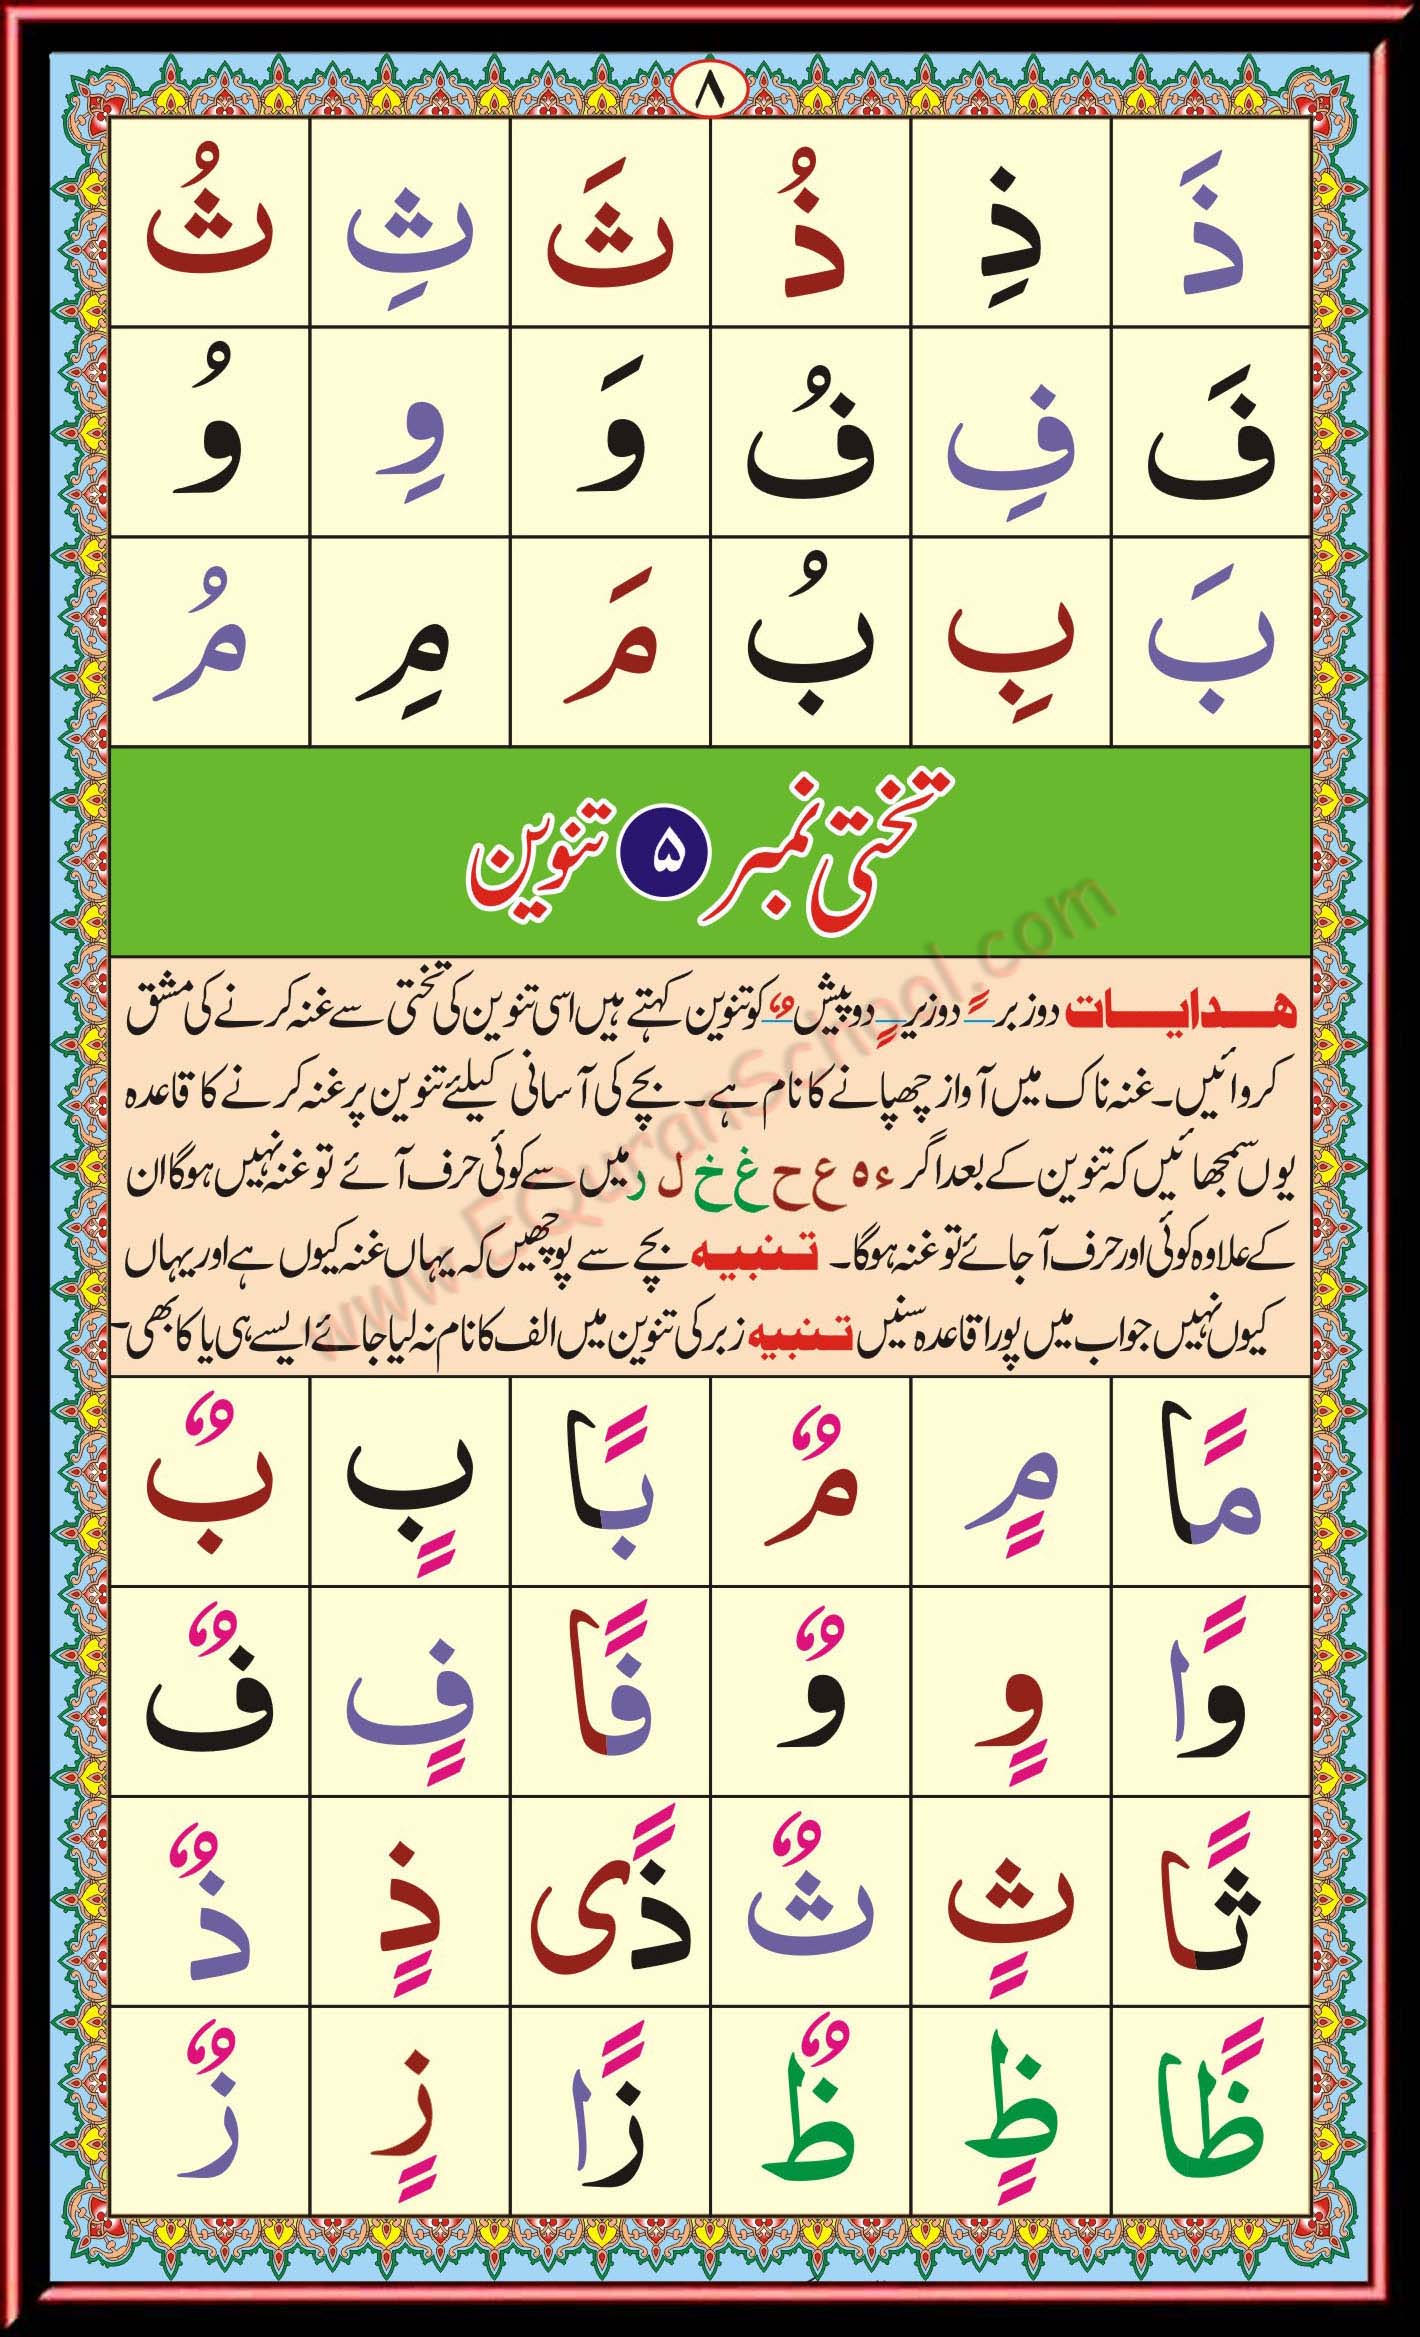 ۸
ذَ ذِ ذُ ثَ ثِ ثُ
فَ فِ فُ وَ وِ وُ
بَ بِ بُ مَ مِ مُ
تختی نمبر ۵ تنوین
هدایات دو زبر ـً دو زیر ـٍ دو پیش ـٌ کو تنوین کہتے ہیں اسی تنوین کی تختی سے غنہ کرنے کی مشق
کروائیں۔ غنہ ناک میں آواز چھپانے کا نام ہے۔ بچے کی آسانی کیلئے تنوین پر غنہ کرنے کا قاعدہ
یوں سمجھائیں کہ تنوین کے بعد اگر ء ہ ع ح غ خ ل ر میں سے کوئی حرف آئے تو غنہ نہیں ہوگا ان
کے علاوہ کوئی اور حرف آجائے تو غنہ ہوگا۔ تنبیہ بچے سے پوچھیں کہ یہاں غنہ کیوں ہے اور یہاں
کیوں نہیں جواب میں پورا قاعدہ سنیں تنبیہ زبر کی تنوین میں الف کا نام نہ لیا جائے ایسے ہی یا کا بھی۔
www.EQuranSchool.com
مًا مٍ مٌ بًا بٍ بٌ
وًا وٍ وٌ فًا فٍ فٌ
ثًا ثٍ ثٌ ذًی ذٍ ذٌ
ظًا ظٍ ظٌ زًا زٍ زٌ